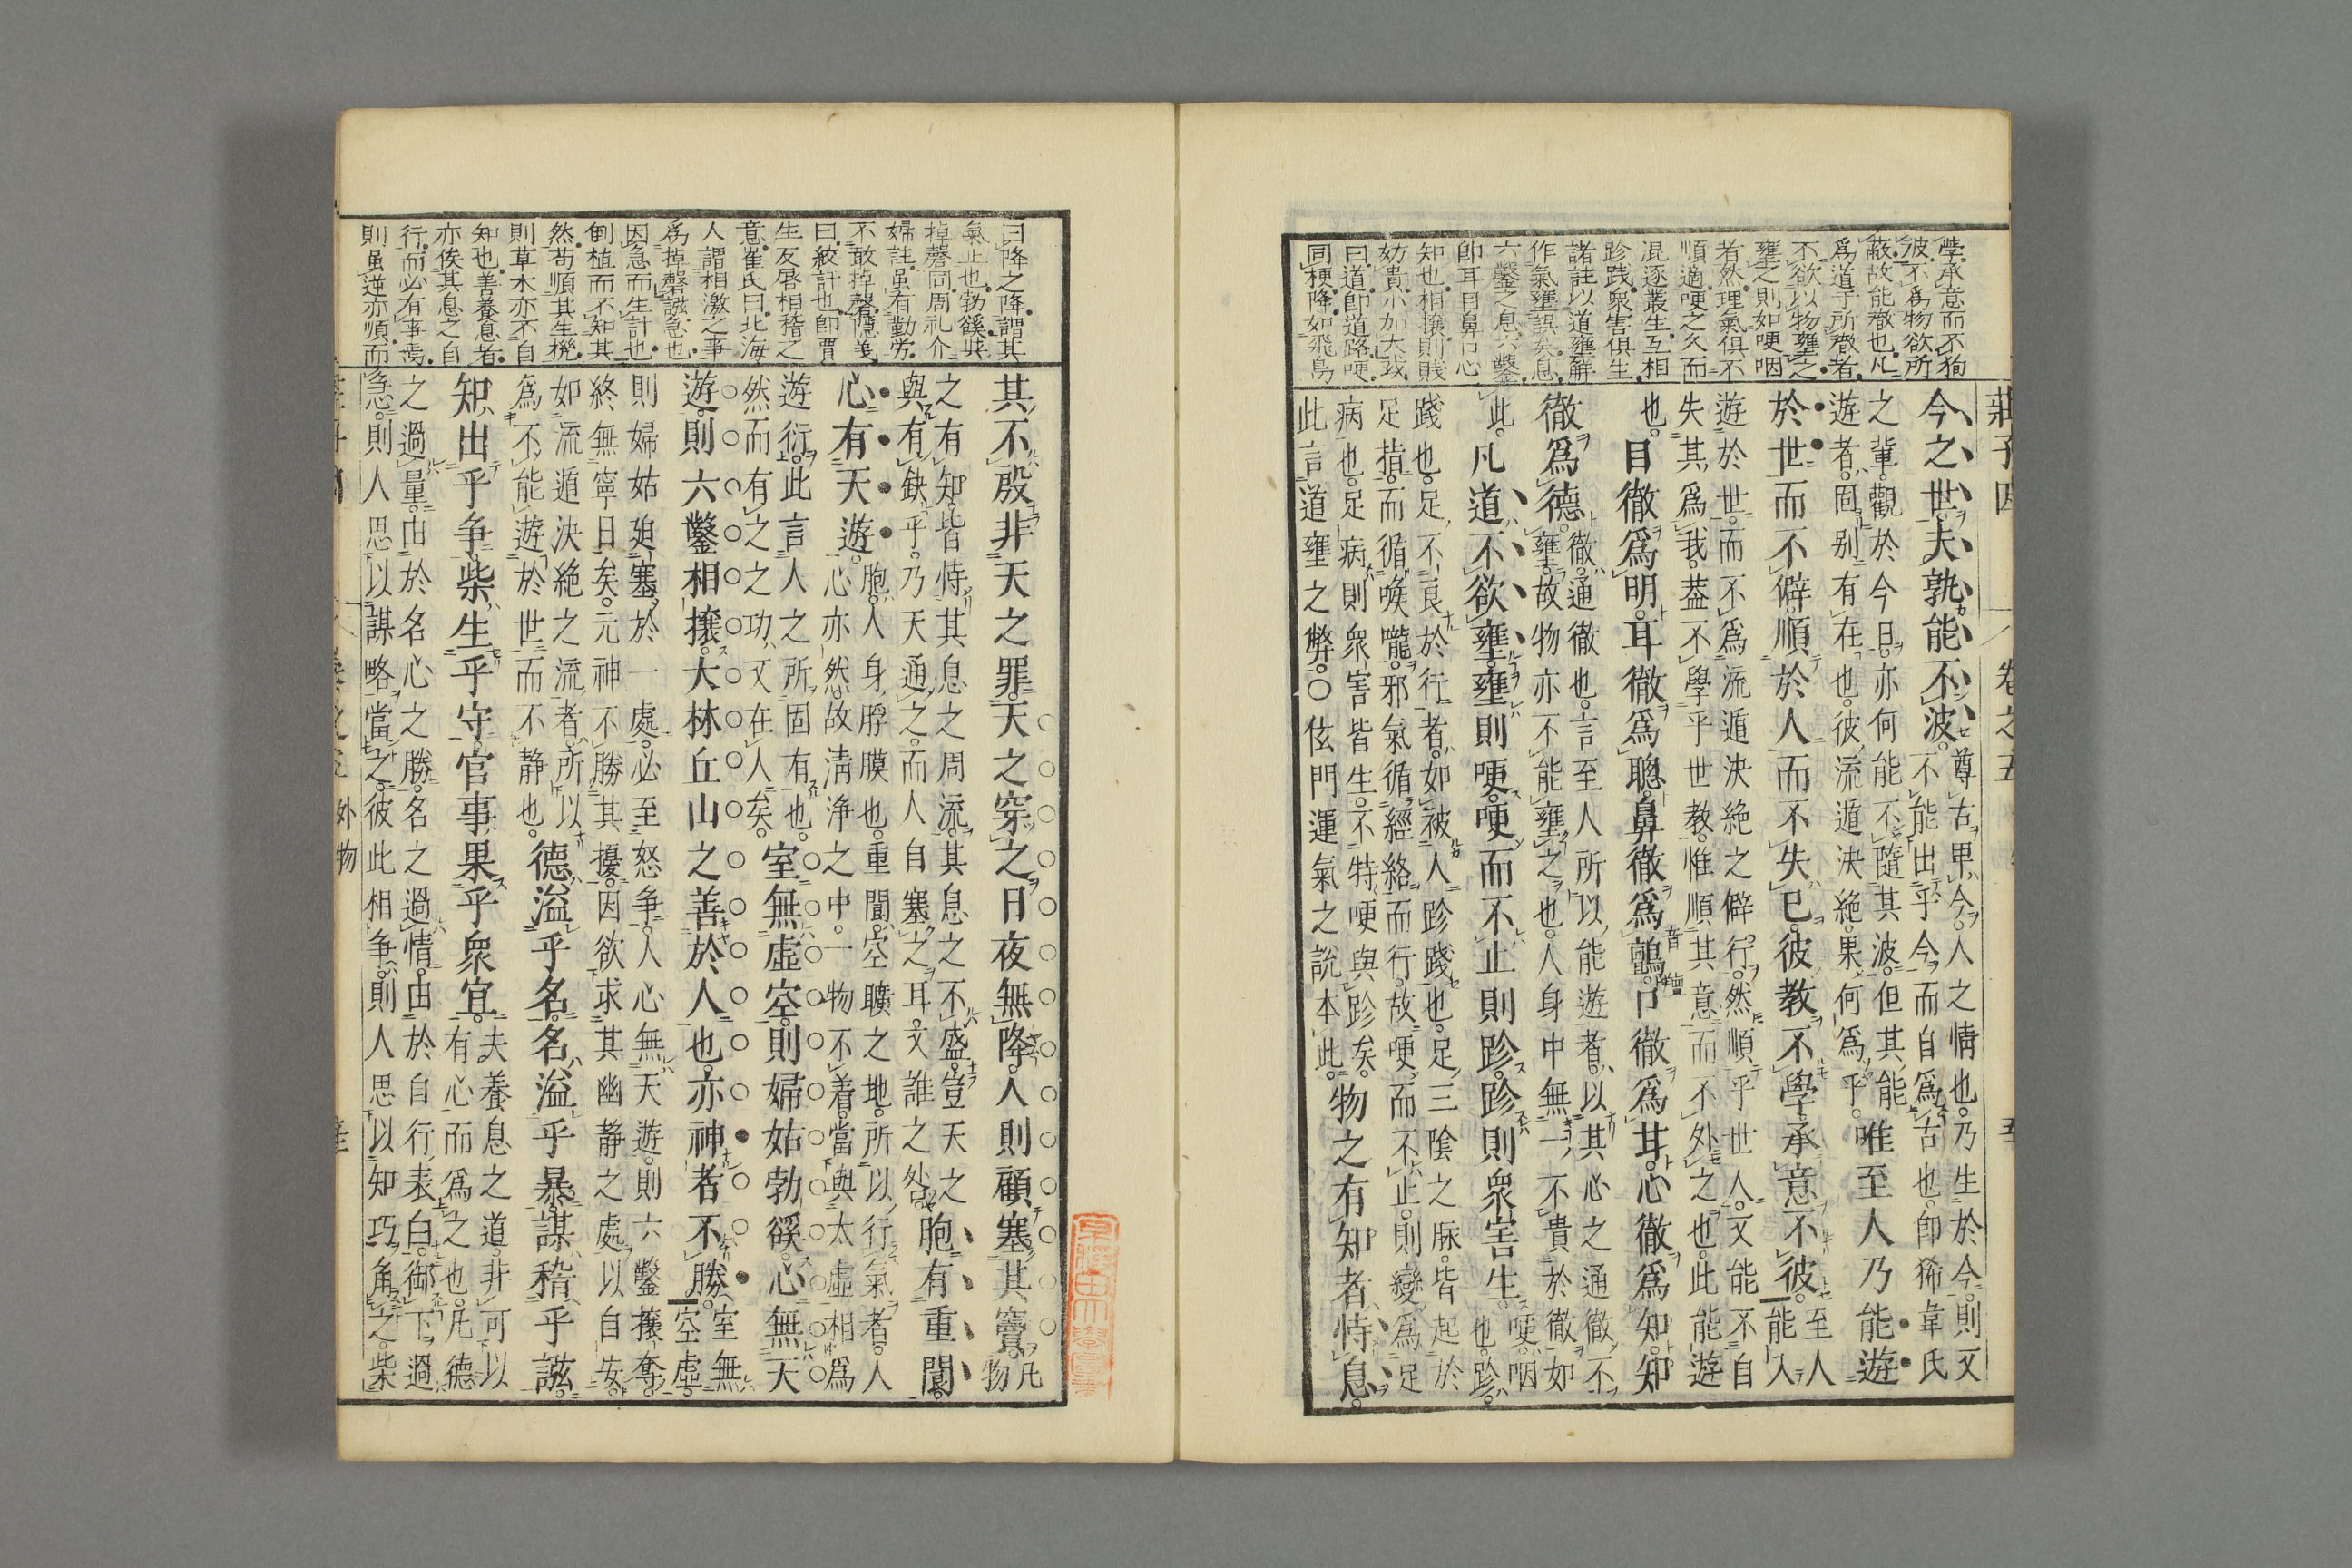 莊子因　卷之五
學承意而不狥
彼不爲物欲所
蔽故能徹也凡
爲道于所徹者
不欲以物壅之
壅之則如哽咽
者然理氣俱不
順適哽之久而
混逐叢生互相
跈踐衆害俱生
諸註以道壅解
作氣壅誤矣息
六鑿之息六鑿
卽耳目鼻口心
知也相攘則賤
妨貴小加大戕
曰道卽道路哽
同梗降如飛鳥
今之世夫孰能不波。
尊古卑今。人之情也。乃生於今。則又
不能出乎今。而自爲古也。卽狶韋氏
之輩。觀於今日。亦何能不隨其波。但其能
遊者。固别有在也。彼流遁決絶。果何爲乎。
唯至人乃能遊
於世而不僻。順於人而不失已。彼教不學。承意不彼。
至人
能入
遊於世。而不爲流遁決絶之僻行。然順乎世人。又能不自
失其爲我。葢不學乎世教。惟順其意。而不外之也。此能遊
也。
目徹爲明。耳徹爲聰。鼻徹爲顫。口徹爲甘。心徹爲知。知
徹爲德。
徹。通徹也。言至人所以能遊者。以其心之通徹。不
壅。故物亦不能壅之也。人身中無一不貴於徹。如
此。
凡道不欲壅。壅則哽。哽而不止則跈。跈則衆害生。
哽。咽
也。跈。
踐也。足不良於行者。如被人跈踐也。足三陰之脉。皆起於
足指。而循喉嚨。邪氣循經絡而行。故哽而不止。則變爲足
病也。足病則衆害皆生。不特哽與跈矣。
此言道壅之弊。○伭門運氣之說本此。
物之有知者恃息。
曰降之降謂其
氣止也勃豀與
掉磬同周礼介
婦註虽有勤勞
不敢掉磬隱義
曰絞訐也卽賈
生反唇相稽之
意崔氏曰北海
人謂相激之事
爲掉磬誸急也
因急而生計也
倒植而不知其
然苟順其生機
則草木亦不自
知也善養息者
亦俟其息之自
行而必有事焉
則虽逆亦順而
其不殷非天之罪。天之穿之。日夜無降。人則顧塞其竇。
凡
物
之有知。皆恃其息之周流。其息之不盛。豈天之
與有缺乎。乃天通之。而人自塞之耳。又誰之咎。
胞有重閬。
心有天遊。
胞。人身脬膜也。重閬。空曠之地。所以行氣者。人
心亦然。故淸浄之中。一物不着。當與太虛相爲
遊衍。此言人之所固有也。
然而有之之功。又在人矣。
室無虛空。則婦姑勃豀。心無天
遊。則六鑿相攘。大林丘山之善於人也。亦神者不勝。
室無
空虛
則婦姑廹塞於一處。必至怒争。人心無天遊。則六鑿攘奪。
終無寧日矣。元神不勝其擾。因欲求其幽静之處。以自安。
如流遁決絶之流者。所以
爲不能遊於世而不静也。
德溢乎名。名溢乎暴。謀稽乎誸。
知出乎争。柴生乎守。官事果乎衆宜。
夫養息之道。非可以
有心而爲之也。凡德
之過量。由於名心之勝。名之過情。由於自行表白。御下過
急。則人思以謀略當之。彼此相争。則人思以知巧角之。柴
外物